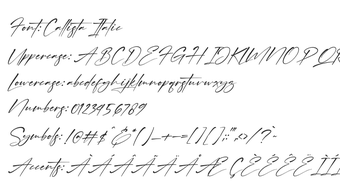 Font: Callista Italic
Uppercase: ABCDEFGHIJKLMNOPQR
Lowercase: abcdefghijklmnopqrstuvwxyz
Numbers: 0123456789
Symbols: !@#$%^&*()_+-={}[]:;"'<>/?
Accents: ÀÁÂÃÄÅÆÇÈÉÊËÌÍ